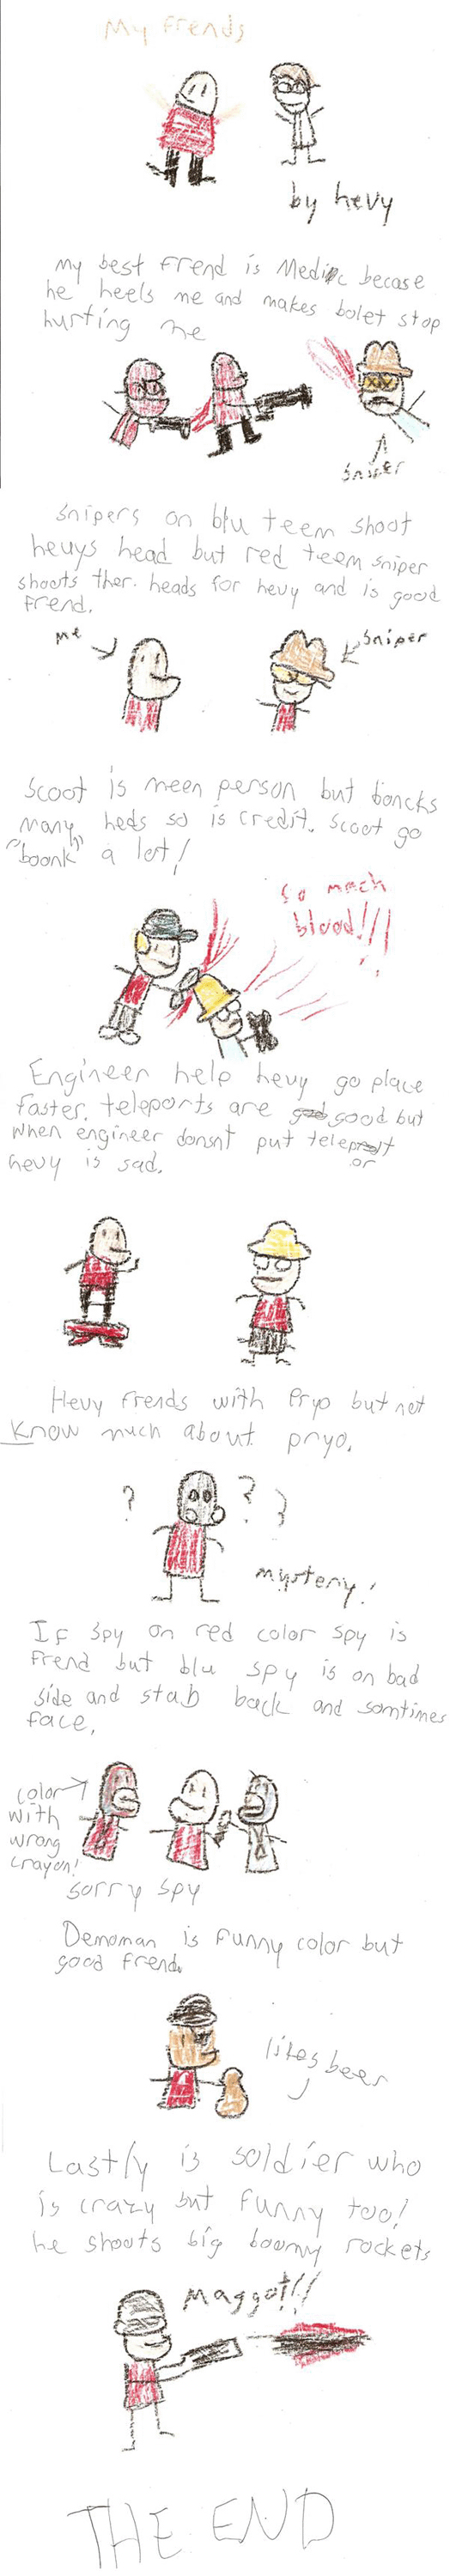 My Frends
by hevy
My best frend is Medic becase
he heels me and makes bolet stop
hurting me
sniper
Snipers on blu teem shoot
heuys head but red teem sniper
shoots ther. heads for hevy and is good
frend.
me
Sniper
Scoot is meen person but boncks
many heds so is credit. Scoot go
"boonk" a lot!
So mach
blood!!!
Engineer help hevy go place
faster. teleports are good but
when engineer donsnt put teleport
or
hevy is sad.
Hevy frends with Pryo but not
Know much about pryo.
? ? ?
mysteriy!
If spy on red color spy is
frend but blu spy is on bad
side and stab back and somtimes
face.
color
with
wrong
crayon!
sorry spy
Demoman is funny color but
good frend.
likes beer
Lastly is soldier who
is crazy but funny too!
he shoots big boomy rockets
maggot!!!
THE END